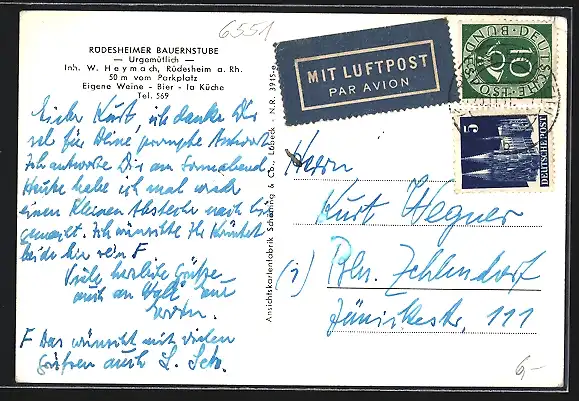 6551
RÜDESHEIMER BAUERNSTUBE
— Urgemütlich —
Inh. W. Heymach, Rüdesheim a. Rh.
50 m vom Parkplatz
Eigene Weine - Bier - la Küche
Tel. 569
Lieber Kurt, ich danke Dir
sehr für Deine prompte Antwort
Ich antworte Dir am Sonnabend.
Heute habe ich mal
einen kleinen Abstecher nach hier
gemacht. Ich wünschte Ihr könntet
beide hier sein F
Viele herzliche Grüße
auch an
F Das wünscht mit vielen
Grüßen auch
Ansichtskartenfabrik Schöning & Co., Lübeck · N.R. 3915
MIT LUFTPOST
PAR AVION
DEUTSCHE BUNDESPOST
10
5
DEUTSCHE POST
Herrn
Kurt Wegner
(1) Bln. Zehlendorf
111
6,-